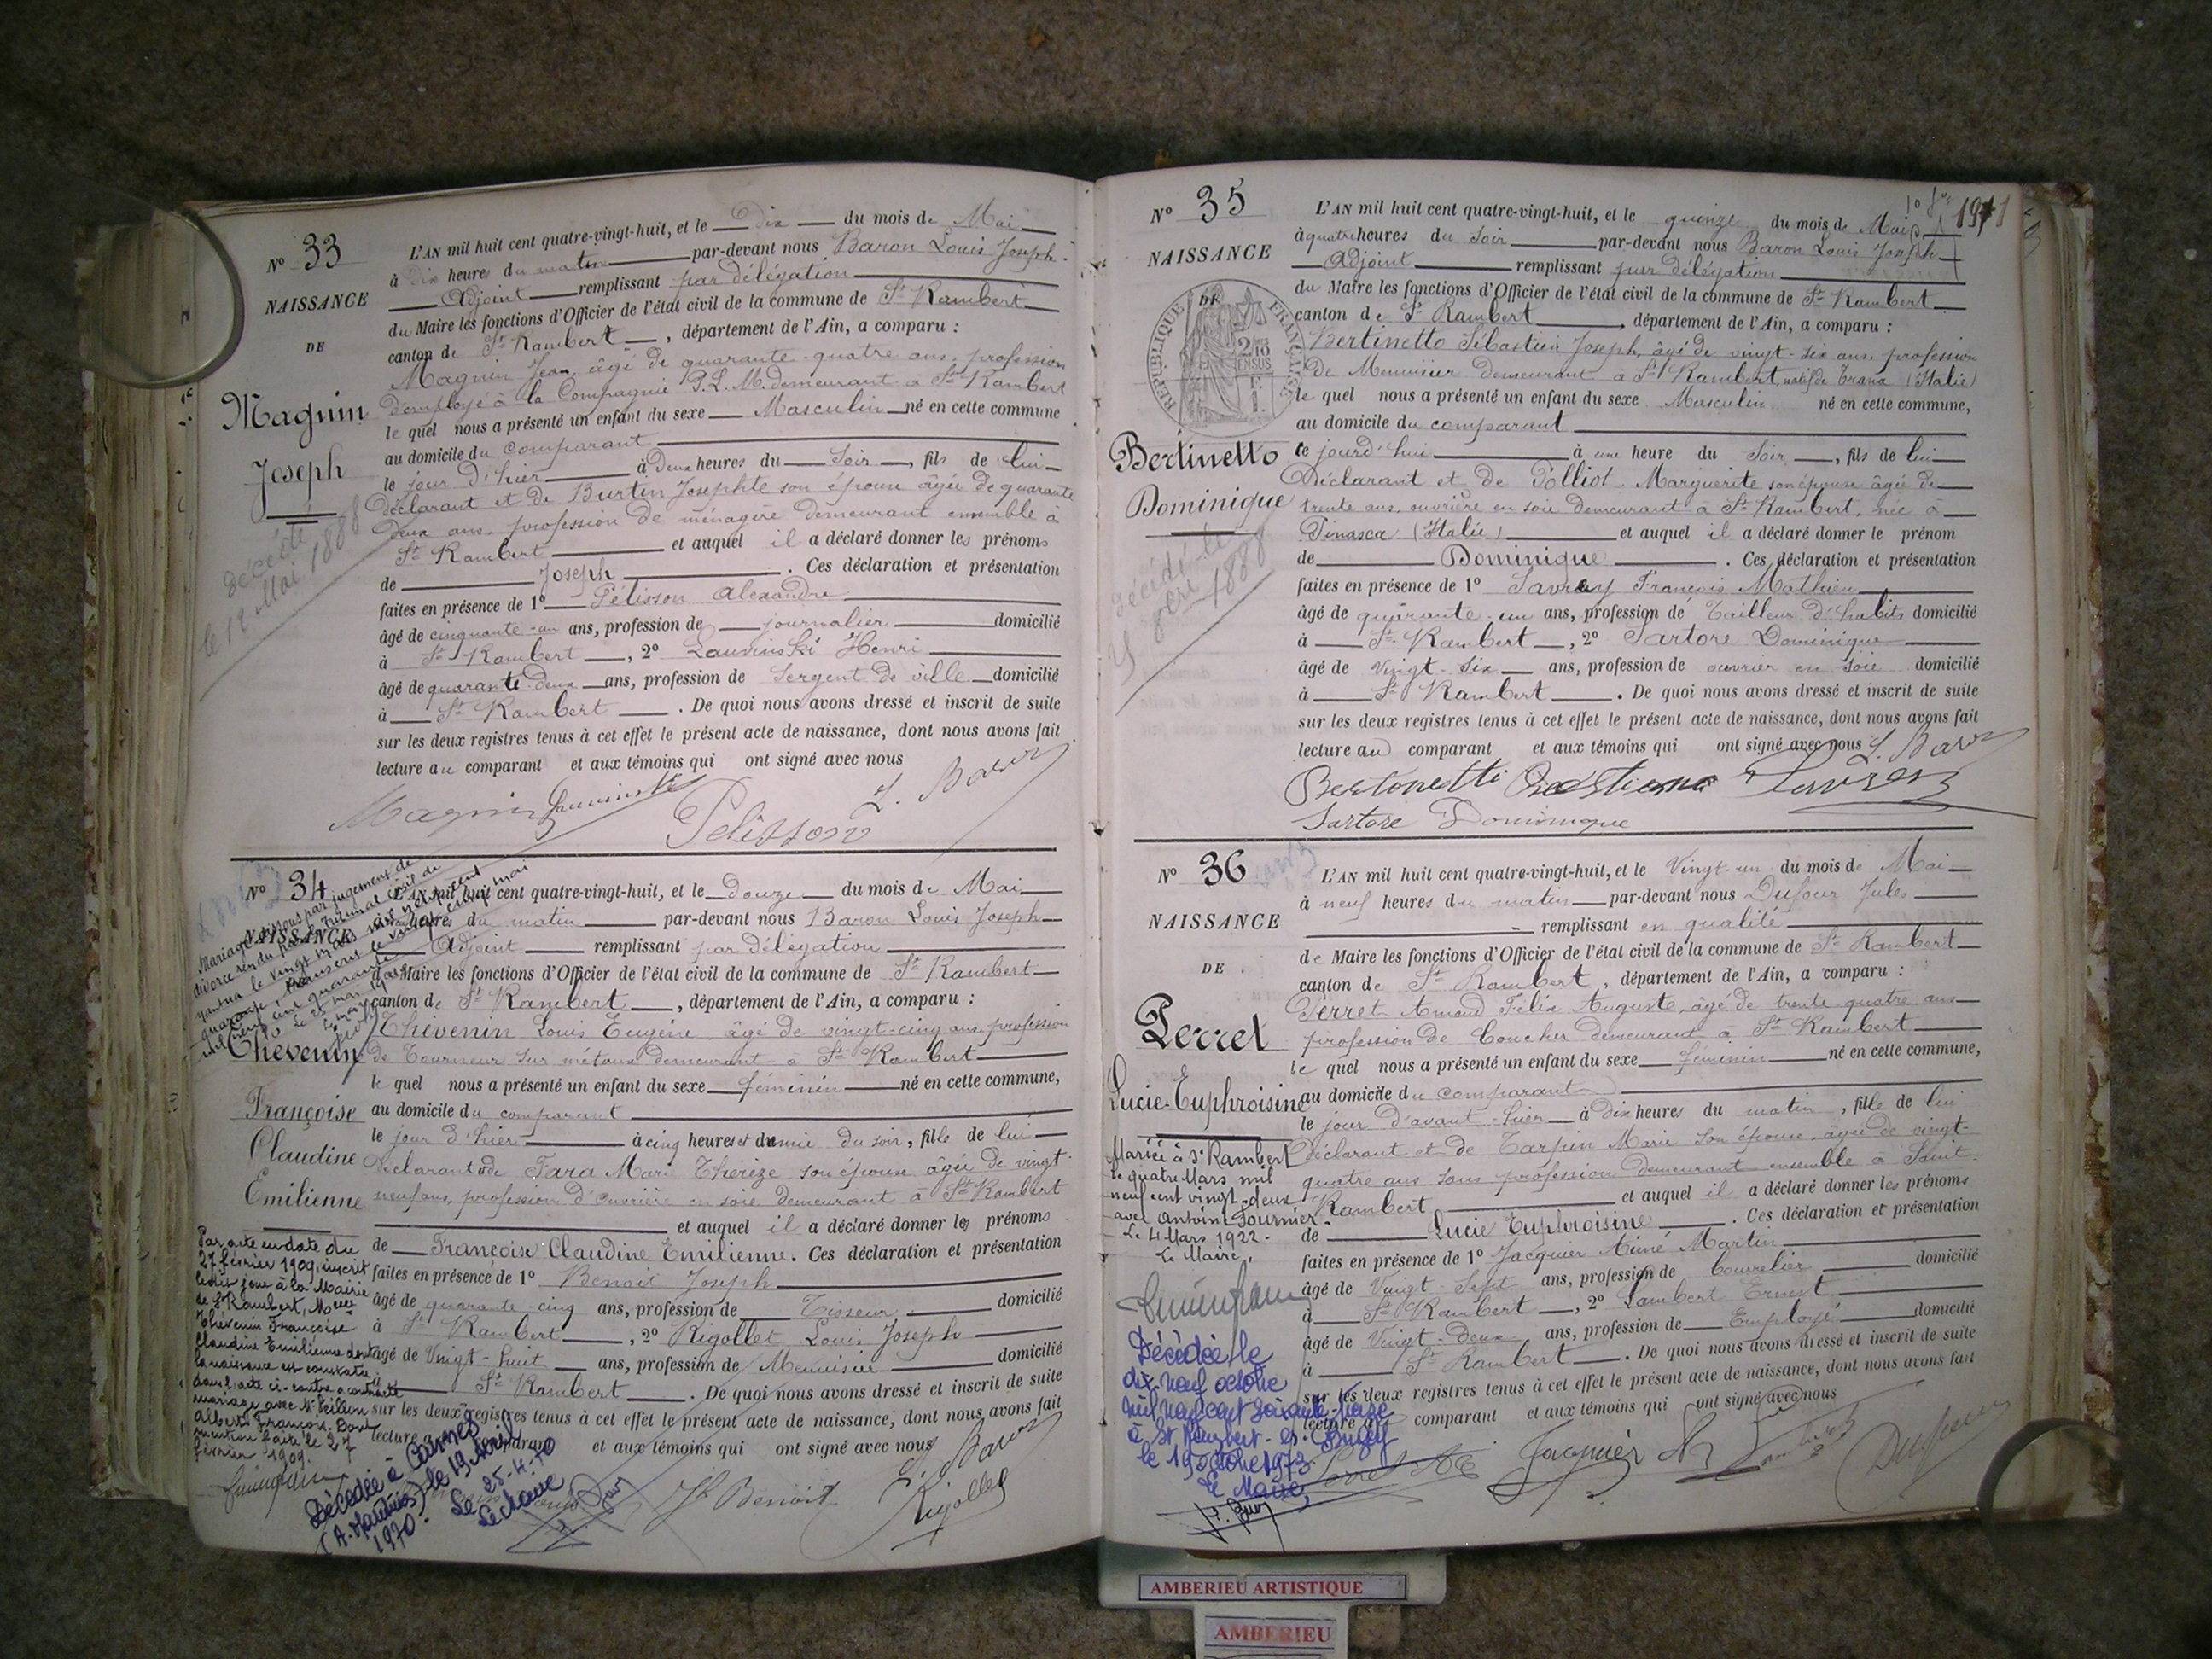 N° 33
NAISSANCE
DE
Magnin
Joseph
décédé
le 12 Mai 1888
L'AN mil huit cent quatre-vingt-huit, et le Dix du mois de Mai
à Dix heures du matin par-devant nous Baron Louis Joseph
Adjoint remplissant par délégation
du Maire les fonctions d'Officier de l'état civil de la commune de St Rambert
canton de St Rambert, département de l'Ain, a comparu :
Magnin Jean, âgé de quarante-quatre ans, profession
d'employé à la Compagnie P.L.M. demeurant à St Rambert
le quel nous a présenté un enfant du sexe Masculin né en cette commune
au domicile du comparant
le jour d'hier à Deux heures du Soir, fils de lui
déclarant et de Burtin Josephte son épouse âgée de quarante
deux ans, profession de ménagère demeurant ensemble à
St Rambert et auquel il a déclaré donner les prénoms
de Joseph. Ces déclaration et présentation
faites en présence de 1° Pélisson Alexandre
âgé de cinquante-un ans, profession de journalier domicilié
à St Rambert, 2° Henri
âgé de quarante-deux ans, profession de Sergent de ville domicilié
à St Rambert. De quoi nous avons dressé et inscrit de suite
sur les deux registres tenus à cet effet le présent acte de naissance, dont nous avons fait
lecture au comparant et aux témoins qui ont signé avec nous
Magnin Pelisson L. Baron
N° 34
NAISSANCE
Thévenin
Françoise
Claudine
Emilienne
Mariage dissous par jugement de
divorce rendu par le Tribunal civil de
Par acte en date du
27 février 1909, inscrit
le dit jour à la Mairie
de St Rambert, Melle
Thévenin Françoise
Claudine Emilienne dont
la naissance est constatée
dans l'acte ci-contre a contracté
mariage avec Mr
Albert François. Dont
mention faite le 27
février 1909.
Décédée à Cannes
(A. Maritimes) le 19 Avril
1970.
Le 25-4-70
Le Maire
L'AN mil huit cent quatre-vingt-huit, et le Douze du mois de Mai
heures du matin par-devant nous Baron Louis Joseph
Adjoint remplissant par délégation
du Maire les fonctions d'Officier de l'état civil de la commune de St Rambert
canton de St Rambert, département de l'Ain, a comparu :
Thévenin Louis Eugène, âgé de vingt-cinq ans, profession
de Tourneur sur métaux demeurant à St Rambert
le quel nous a présenté un enfant du sexe féminin né en cette commune,
au domicile du comparant
le jour d'hier à cinq heures et demie du soir, fille de lui
Déclarant et de Fara Marie Thérèze son épouse âgée de vingt
neuf ans, profession d'ouvrière en soie demeurant à St Rambert
et auquel il a déclaré donner les prénoms
de Françoise Claudine Emilienne. Ces déclaration et présentation
faites en présence de 1° Benoit Joseph
âgé de quarante-cinq ans, profession de Tisseur domicilié
à St Rambert, 2° Rigollet Louis Joseph
âgé de Vingt-huit ans, profession de Menuisier domicilié
à St Rambert. De quoi nous avons dressé et inscrit de suite
sur les deux registres tenus à cet effet le présent acte de naissance, dont nous avons fait
lecture au comparant et aux témoins qui ont signé avec nous
L. Baron
Jh Benoit Rigollet
N° 35
NAISSANCE
REPUBLIQUE FRANÇAISE
Bertinetto
Dominique
décédé le
1888
L'AN mil huit cent quatre-vingt-huit, et le quinze du mois de Mai
à quatre heures du Soir par-devant nous Baron Louis Joseph
Adjoint remplissant par délégation
du Maire les fonctions d'Officier de l'état civil de la commune de St Rambert
canton de St Rambert, département de l'Ain, a comparu :
Bertinetto Sébastien Joseph, âgé de vingt-six ans, profession
De Menuisier demeurant à St Rambert, natif de Trana (Italie)
le quel nous a présenté un enfant du sexe Masculin né en cette commune,
au domicile du comparant
ce jourd'hui à une heure du Soir, fils de lui
Déclarant et de Polliot Marguerite son épouse âgée de
trente ans, ouvrière en soie demeurant à St Rambert, née à
Pinasca (Italie) et auquel il a déclaré donner le prénom
de Dominique. Ces déclaration et présentation
faites en présence de 1° Savrey François Mathieu
âgé de quarante-un ans, profession de Tailleur d'habits domicilié
à St Rambert, 2° Sartore Dominique
âgé de Vingt-Six ans, profession de ouvrier en soie domicilié
à St Rambert. De quoi nous avons dressé et inscrit de suite
sur les deux registres tenus à cet effet le présent acte de naissance, dont nous avons fait
lecture au comparant et aux témoins qui ont signé avec nous L. Baron
Sartore Dominique
N° 36
NAISSANCE
DE
Perret
Lucie-Euphroisine
Mariée à St Rambert
le quatre Mars mil
neuf cent vingt-deux
avec Antoine Fournier.
Le 4 Mars 1922.
Le Maire,
Décédée le
dix-neuf octobre
mil neuf cent soixante-treize
à St Rambert-en-Bugey
le 19 octobre 1973
Le Maire,
L'AN mil huit cent quatre-vingt-huit, et le Vingt-un du mois de Mai
à neuf heures du matin par-devant nous Dufour Jules
remplissant en qualité
de Maire les fonctions d'Officier de l'état civil de la commune de St Rambert
canton de St Rambert, département de l'Ain, a comparu :
Perret Amand Félix Auguste, âgé de trente-quatre ans
profession de boucher demeurant à St Rambert
le quel nous a présenté un enfant du sexe féminin né en cette commune,
au domicile du comparant
le jour d'avant-hier à dix heures du matin, fille de lui
Déclarant et de Tarpin Marie son épouse, âgée de vingt-
quatre ans sans profession demeurant ensemble à Saint
Rambert et auquel il a déclaré donner les prénoms
de Lucie Euphroisine. Ces déclaration et présentation
faites en présence de 1° Jacquier Aimé Martin
âgé de Vingt-Sept ans, profession de bourrelier domicilié
à St Rambert, 2° Lambert Ernest
âgé de Vingt-deux ans, profession de Employé domicilié
à St Rambert. De quoi nous avons dressé et inscrit de suite
sur les deux registres tenus à cet effet le présent acte de naissance, dont nous avons fait
lecture au comparant et aux témoins qui ont signé avec nous
AMBERIEU ARTISTIQUE
AMBERIEU